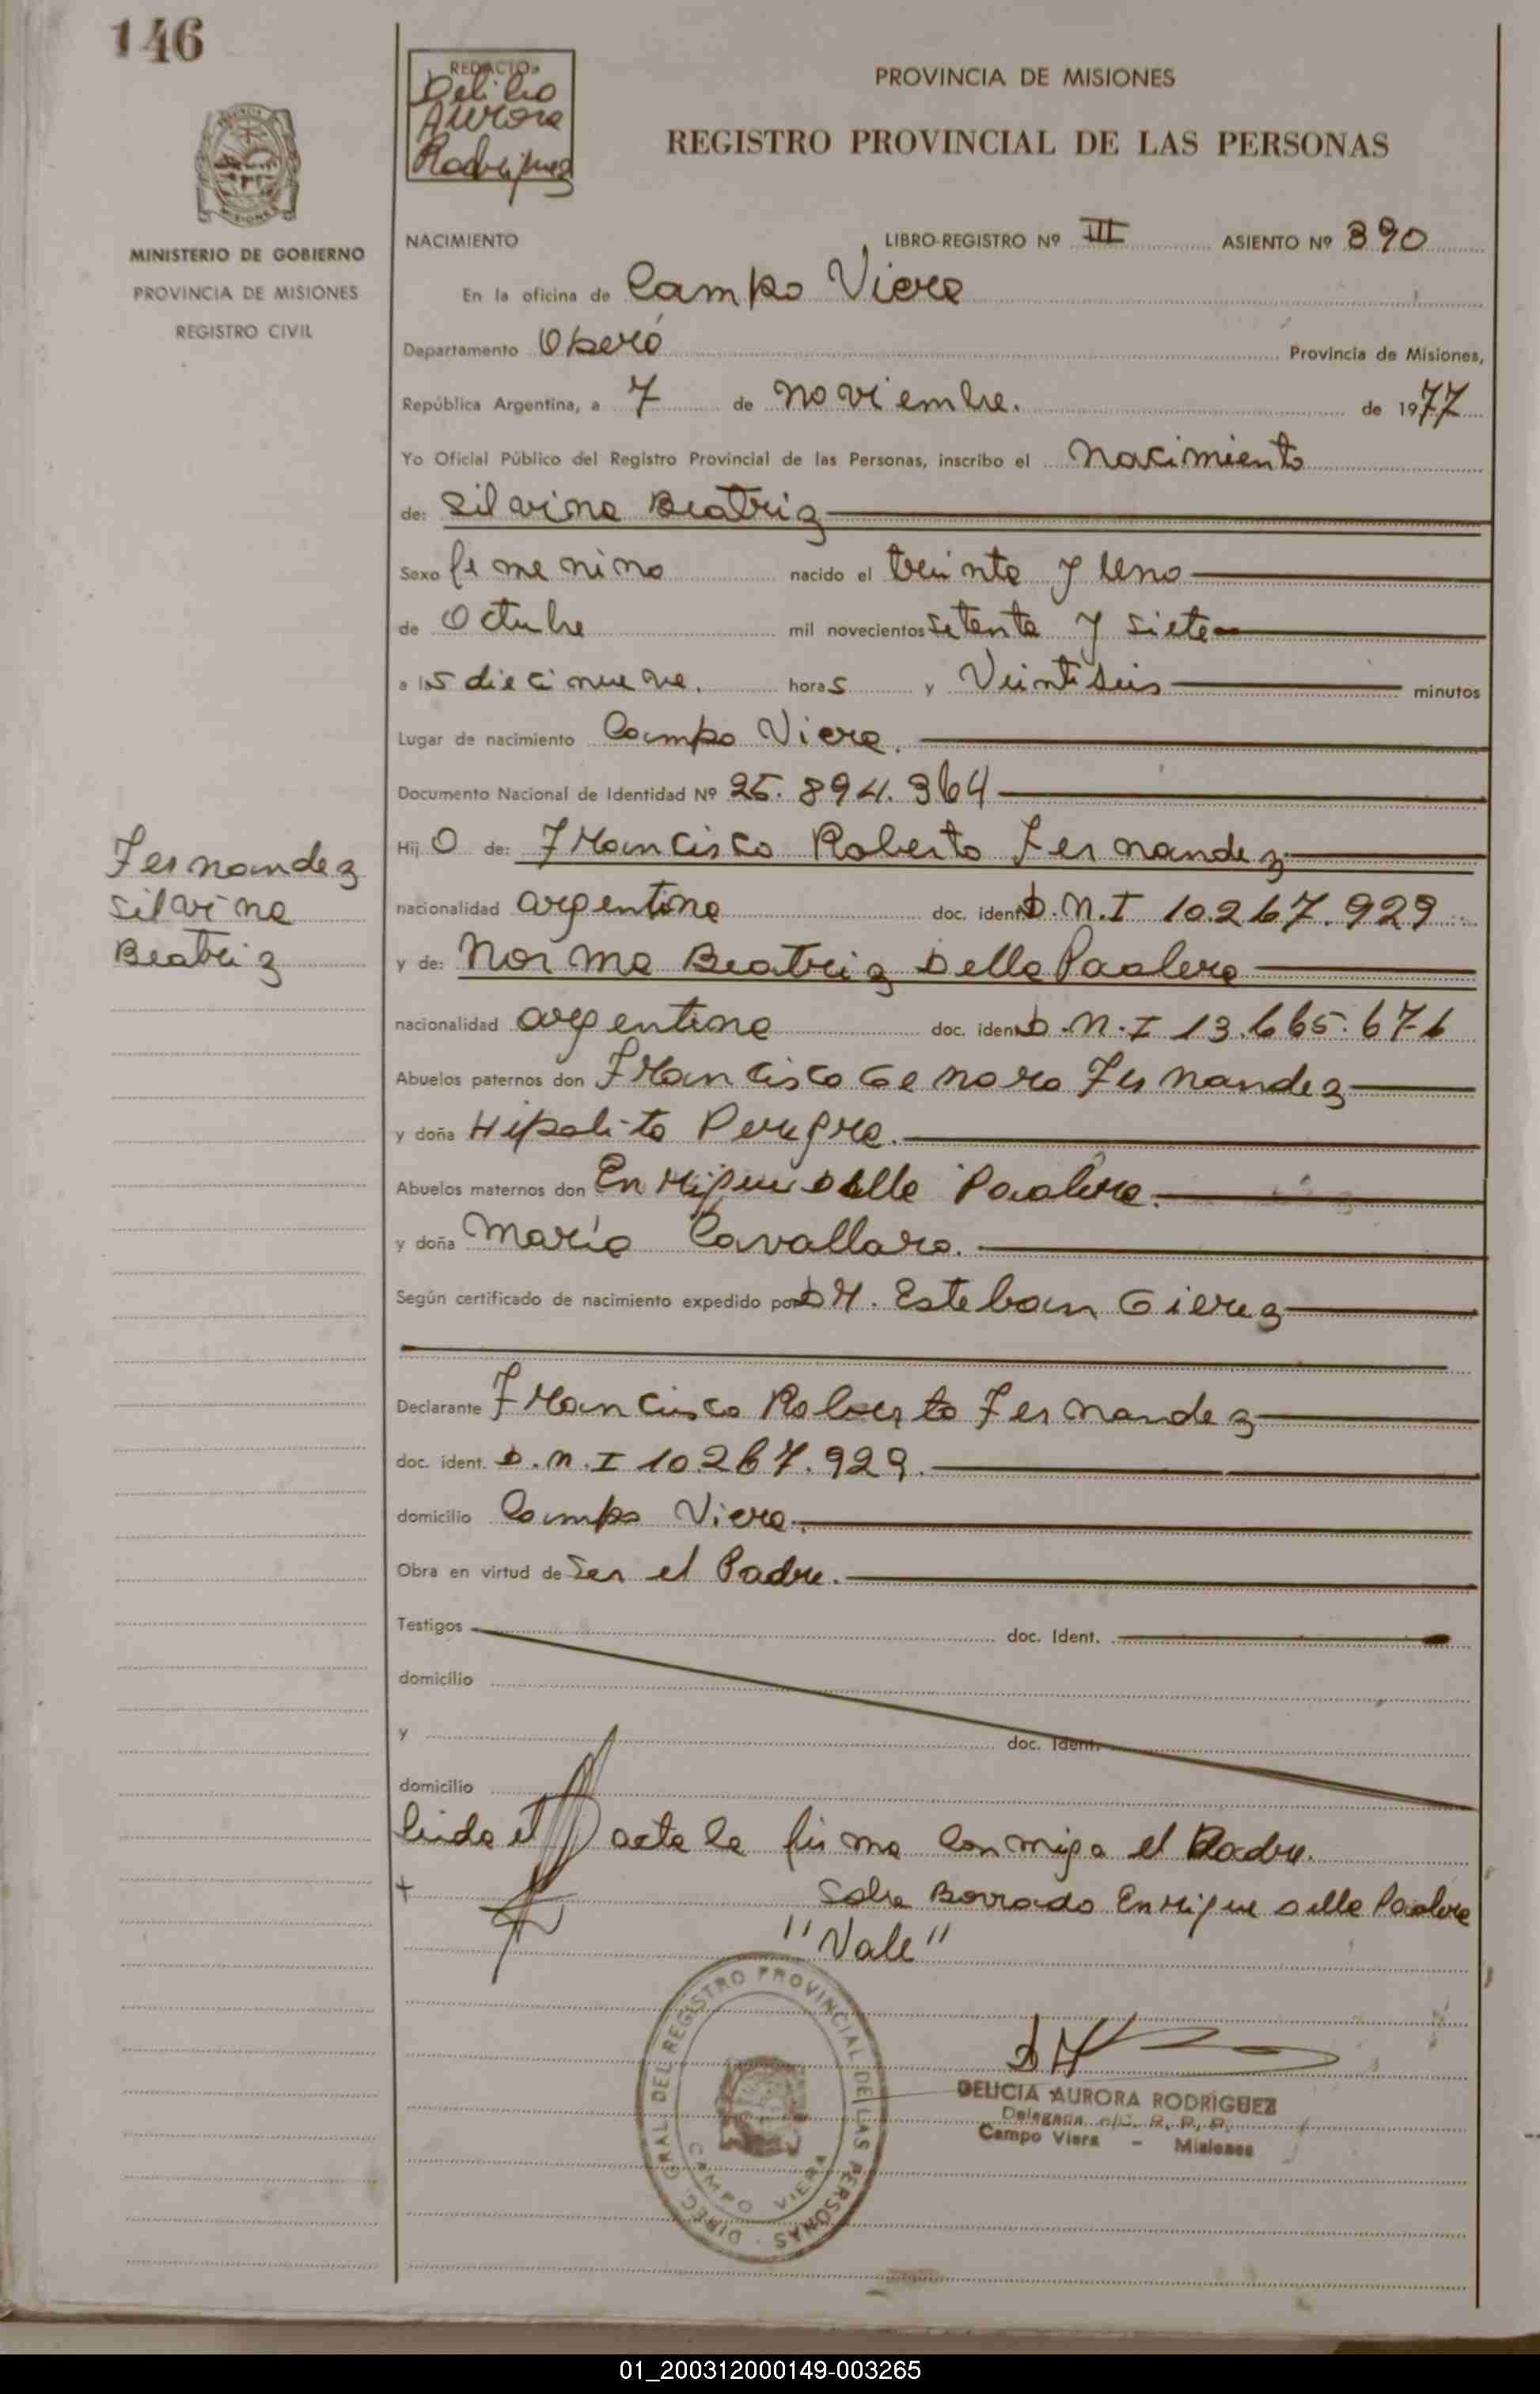 146
REDACTO:
Aurora
Rodriguez
PROVINCIA DE MISIONES
REGISTRO PROVINCIAL DE LAS PERSONAS
MINISTERIO DE GOBIERNO
PROVINCIA DE MISIONES
REGISTRO CIVIL
NACIMIENTO LIBRO-REGISTRO Nº III ASIENTO Nº 390
En la oficina de Campo Viera
Departamento Oberá Provincia de Misiones,
República Argentina, a 7 de noviembre. de 1977
Yo Oficial Público del Registro Provincial de las Personas, inscribo el nacimiento
de: Silvina Beatriz
Sexo femenino nacido el treinta y uno
de Octubre mil novecientos setenta y siete
a las diecinueve. horas y Veintiseis minutos
Lugar de nacimiento Campo Viera.
Documento Nacional de Identidad Nº 25.894.364
Hij o de: Francisco Roberto Fernandez
nacionalidad argentina doc. ident. D.N.I 10.267.929
y de: Norma Beatriz Delle Paolera
nacionalidad argentina doc. ident. D.N.I 13.665.671
Abuelos paternos don Francisco Genaro Fernandez
y doña Hipolita Pereyra.
Abuelos maternos don Enrique Delle Paolera.
y doña María Cavallaro.
Según certificado de nacimiento expedido por Dr. Esteban Gierez
Declarante Francisco Roberto Fernandez
doc. ident. D.N.I 10.267.929.
domicilio Campo Viera.
Obra en virtud de Ser el Padre.
Testigos doc. Ident.
domicilio
y doc. Ident.
domicilio
leida el acta la firma conmigo el Padre.
+ Sobre Borrado Enrique Delle Paolera
"Vale"
Fernandez
Silvina
Beatriz
DIREC. GRAL. DEL REGISTRO PROVINCIAL DE LAS PERSONAS
CAMPO VIERA
DELICIA AURORA RODRIGUEZ
Delegada R. P. P.
Campo Viera - Misiones
01_200312000149-003265